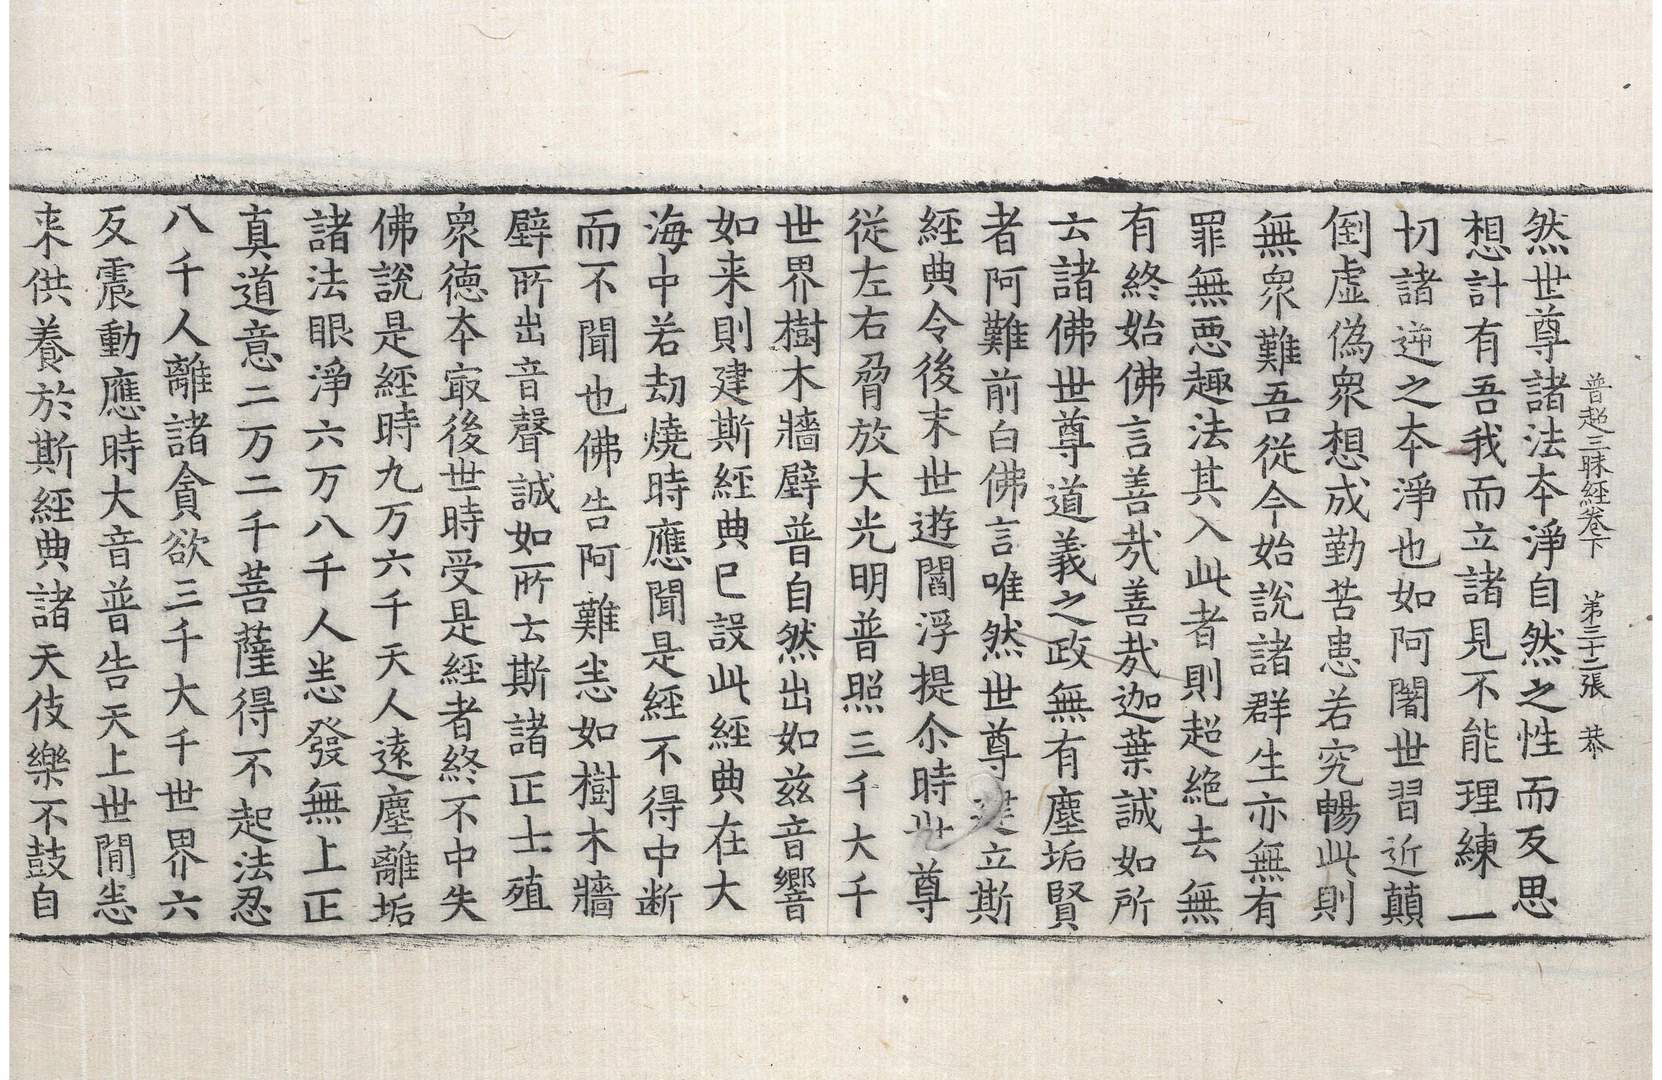 普超三昧経巻下　第三十二張　恭
然世尊諸法夲淨自然之性而反思
想計有吾我而立諸見不能理練一
切諸逆之夲淨也如阿闍世習近顛
倒虚偽衆想成勤苦患若究暢此則
無衆難吾従今始說諸群生亦無有
罪無悪趣法其入此者則超絶去無
有終始佛言善㢤善㢤迦葉誠如所
云諸佛世尊道義之政無有塵垢賢
者阿難前白佛言唯然世尊建立斯
經典令後末世遊閻浮提尒時世尊
従左右脅放大光明普照三千大千
世界樹木牆壁普自然出如兹音響
如来則建斯經典已設此經典在大
海中若劫燒時應聞是經不得中断
而不聞也佛告阿難㳟如樹木牆
壁所出音聲誠如所云斯諸正士殖
衆德夲㝡後世時受是經者終不中失
佛說是經時九万六千天人遠塵離垢
諸法眼淨六万八千人悉發無上正
真道意二万二千菩薩得不起法忍
八千人離諸貪欲三千大千世界六
反震動應時大音普告天上世間悉
来供養於斯經典諸天伎樂不鼓自